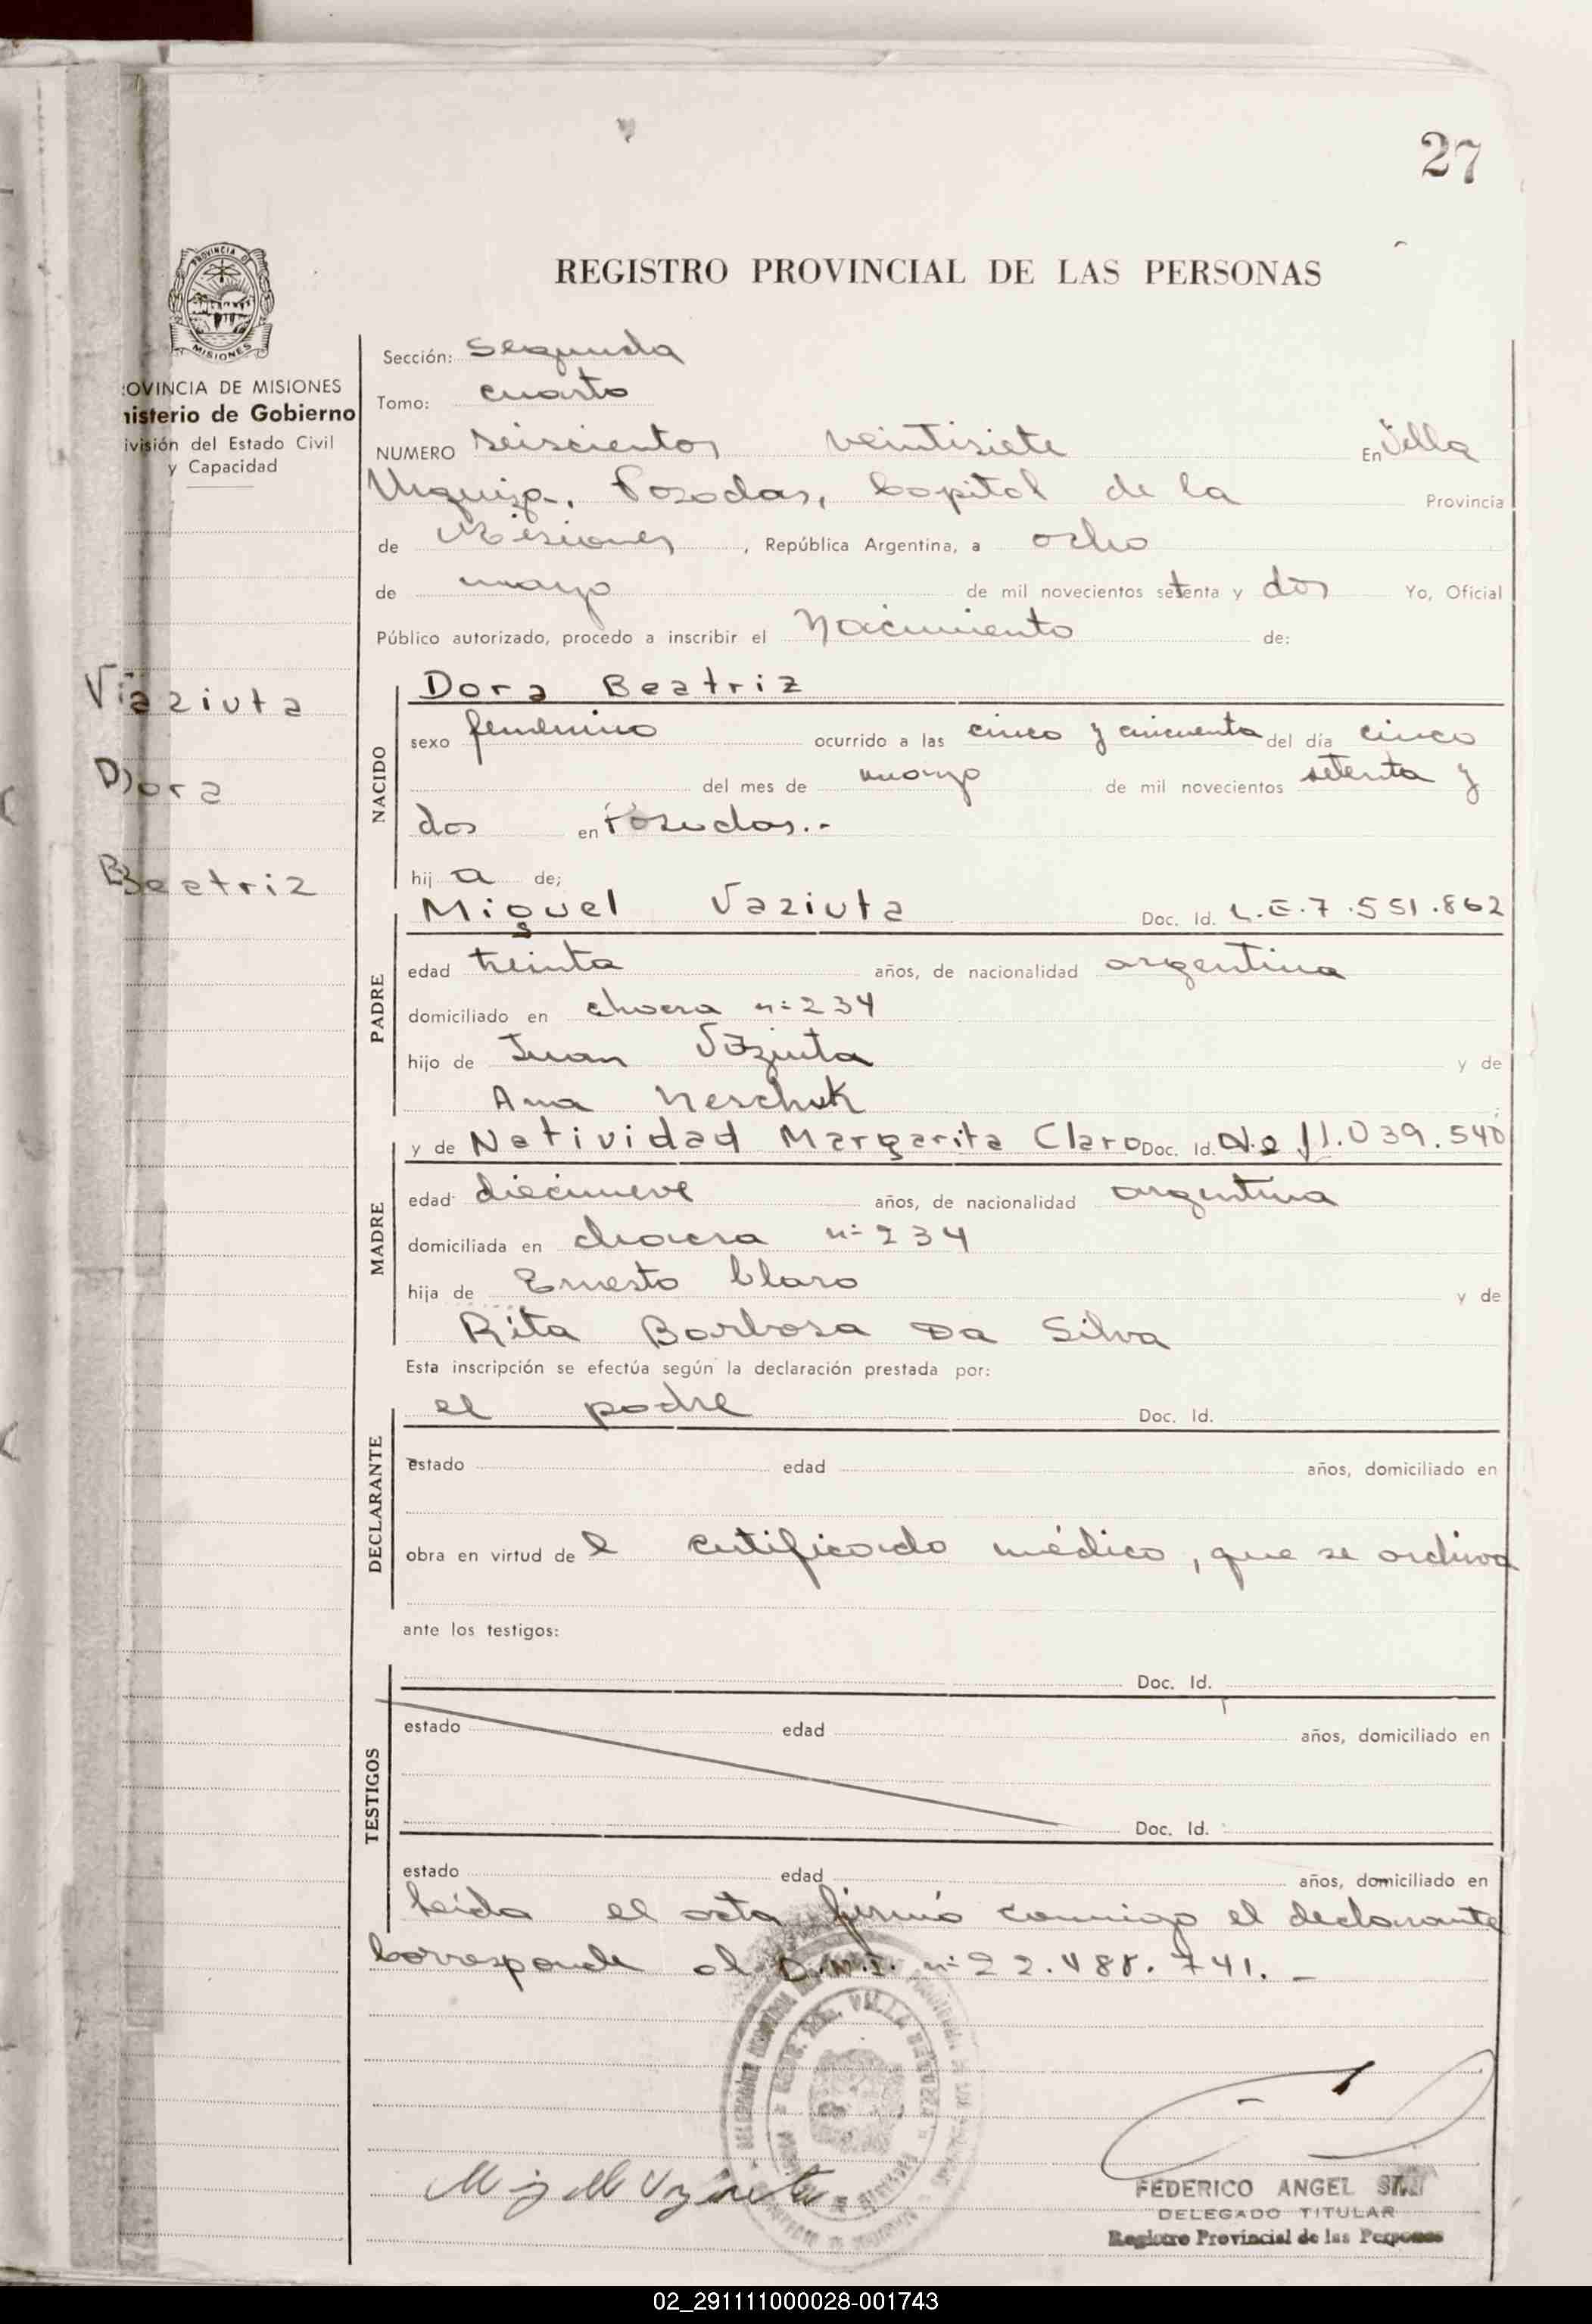 27
REGISTRO PROVINCIAL DE LAS PERSONAS
PROVINCIA DE
MISIONES
OVINCIA DE MISIONES
nisterio de Gobierno
ivisión del Estado Civil
y Capacidad
Viaziuta
Dora
Beatriz
Sección: Segunda
Tomo: cuarto
NUMERO seiscientos veintisiete En Villa
Urquiza, Posadas, Capital de la Provincia
de Misiones, República Argentina, a ocho
de mayo de mil novecientos setenta y dos Yo, Oficial
Público autorizado, procedo a inscribir el Nacimiento de:
NACIDO
Dora Beatriz
sexo femenino ocurrido a las cinco y cincuenta del día cinco
del mes de de mil novecientos setenta y
dos en Posadas.-
hij a de;
PADRE
Miguel Vaziuta Doc. Id. L.E.7.551.862
edad treinta años, de nacionalidad argentina
domiciliado en chacra nº 234
hijo de Juan Vaziuta y de
Ana Neschuk
MADRE
y de Natividad Margarita Claro Doc. Id. 11.039.540
edad diecinueve años, de nacionalidad argentina
domiciliada en chacra nº 234
hija de Ernesto Claro y de
Rita Barbosa Da Silva
Esta inscripción se efectúa según la declaración prestada por:
DECLARANTE
el padre Doc. Id.
estado edad años, domiciliado en
obra en virtud de l certificado médico, que se archiva
ante los testigos:
TESTIGOS
Doc. Id.
estado edad años, domiciliado en
Doc. Id.
estado edad años, domiciliado en
Leída el acta firmó conmigo el declarante
Corresponde al D.N.I. nº 22.488.741.-
FEDERICO ANGEL
DELEGADO TITULAR
Registro Provincial de las Personas
02_291111000028-001743